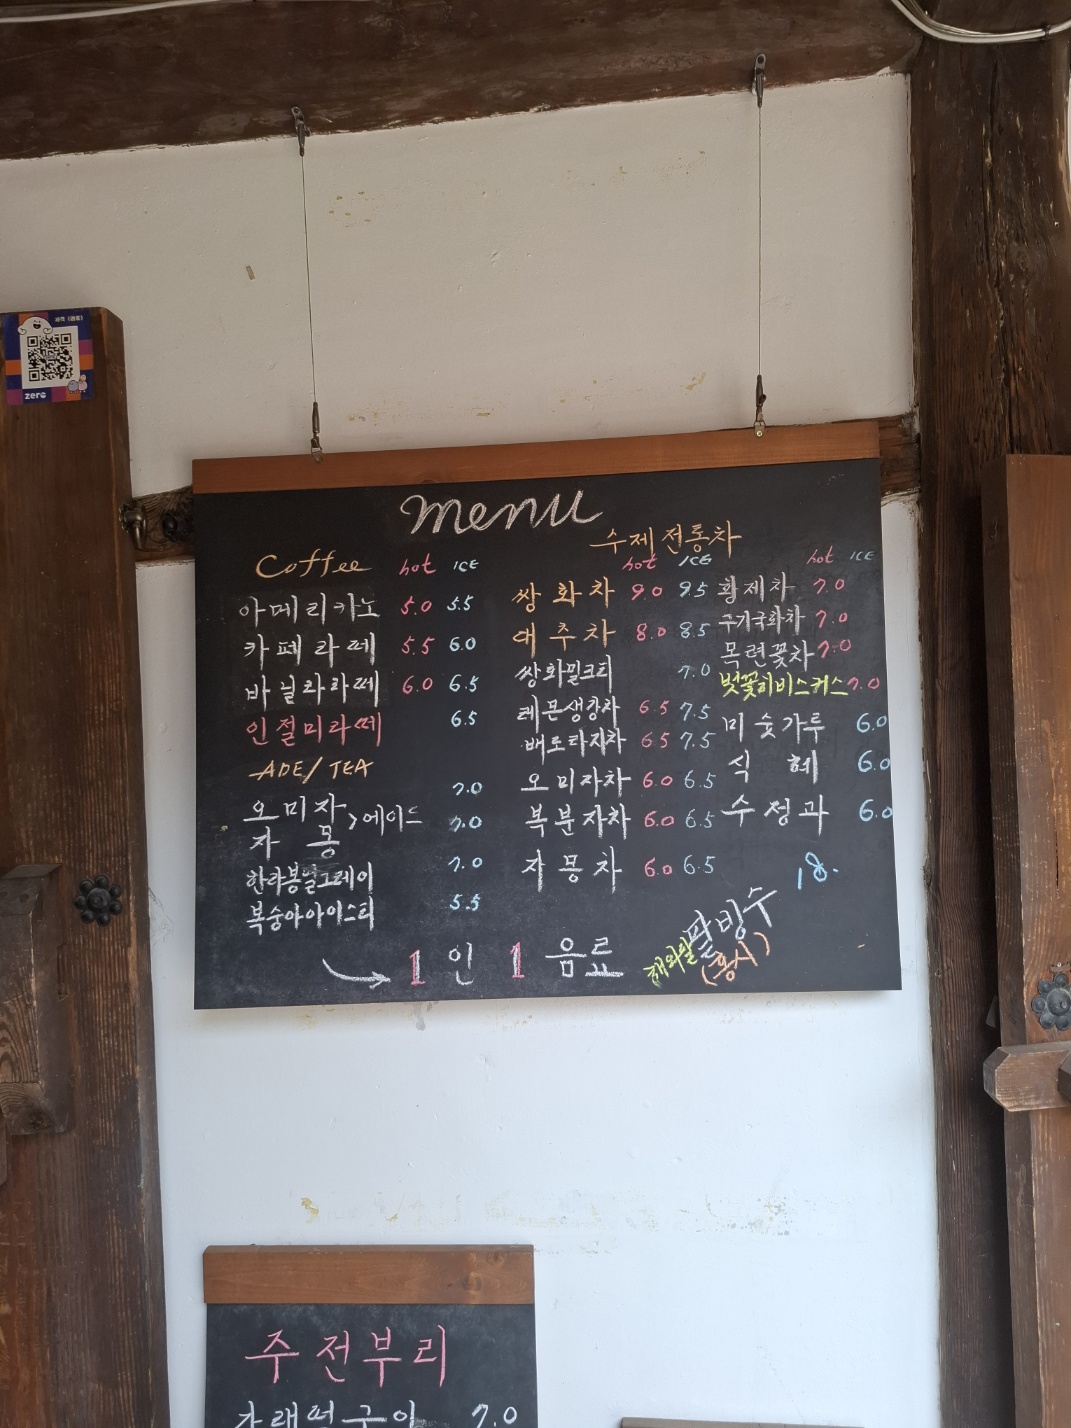 menu
Coffee hot ICE
아메리카노 5.0 5.5
카페라떼 5.5 6.0
바닐라라떼 6.0 6.5
인절미라떼 6.5
ADE/TEA
오미자 >에이드 7.0
자몽 7.0
한라봉얼그레이 7.0
복숭아아이스티 5.5
→ 1인 1음료
수제전통차
hot ICE
쌍화차 9.0 9.5
대추차 8.0 8.5
쌍화밀크티 7.0
레몬생강차 6.5 7.5
배도라지차 6.5 7.5
오미자차 6.0 6.5
복분자차 6.0 6.5
자몽차 6.0 6.5
hot ICE
황제차 7.0
구기국화차 7.0
목련꽃차 7.0
벚꽃히비스커스 7.0
미숫가루 6.0
식혜 6.0
수정과 6.0
팥빙수 18.
(홍시)
zero
주전부리
가래떡구이 7.0